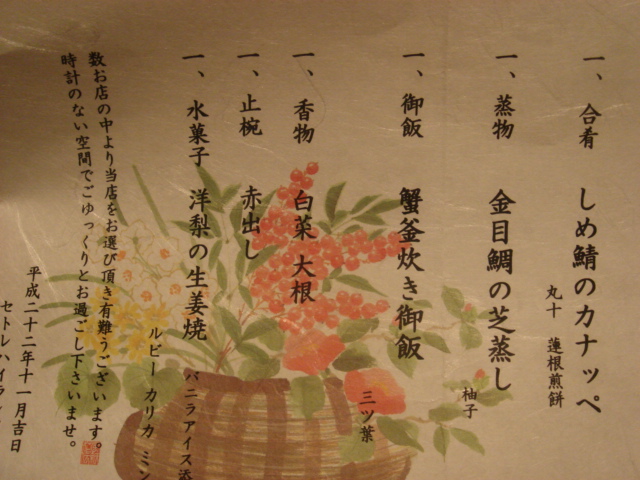 一、合肴 しめ鯖のカナッペ
丸十 蓮根煎餅
一、蒸物 金目鯛の芝蒸し
柚子
一、御飯 蟹釜炊き御飯
三ツ葉
一、香物 白菜 大根
一、止椀 赤出し
一、水菓子 洋梨の生姜焼
バニラアイス添
ルビー カリカ ミン
数お店の中より当店をお選び頂き有難うございます。
時計のない空間でごゆっくりとお過ごし下さいませ。
平成二十二年十一月吉日
セトルハイラン